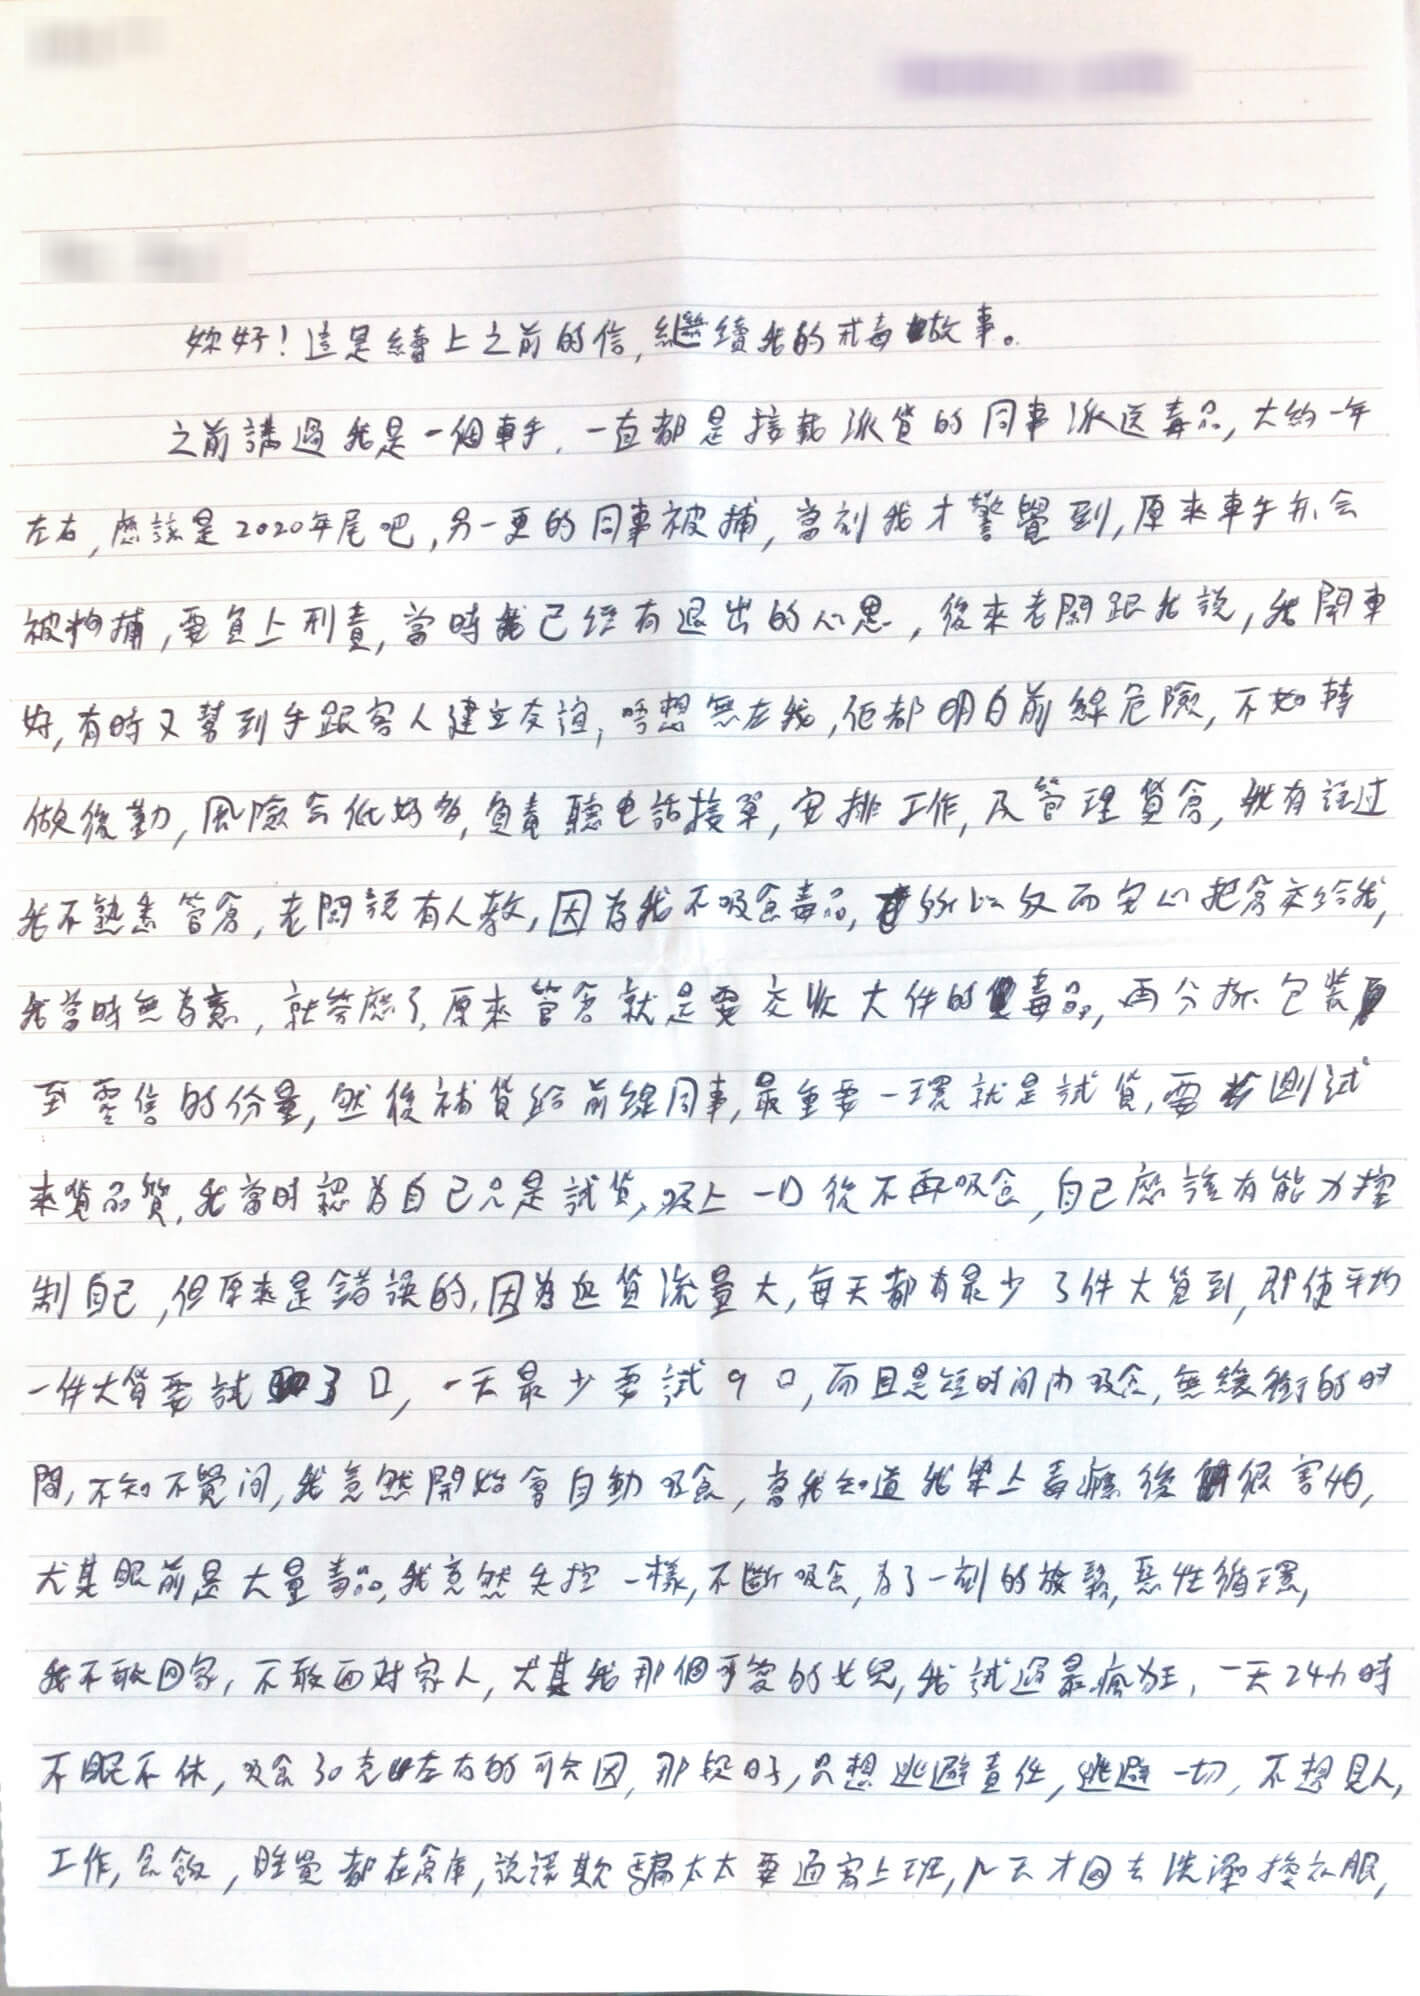 妳好！這是續上之前的信，繼續我的戒毒故事。
之前講過我是一個車手，一直都是接載派貨的同事派送毒品，大約一年
左右，應該是2020年尾吧，另一更的同事被捕，當刻我才警覺到，原來車手亦会
被拘捕，要負上刑責，當時我已經有退出的心思，後來老闆跟我說，我開車
好，有時又幫到手跟客人建立友誼，唔想無左我，佢都明白前線危險，不如轉
做後勤，風險会低好多，負責聽电話接單，安排工作，及管理貨倉，我有説过
我不熟悉管倉，老闆說有人教，因為我不吸食毒品，所以反而安心把倉交給我，
我當時無為意，就答應了，原來管倉就是要交收大件的毒品，再分拆包裝
至零售的份量，然後補貨給前線同事，最重要一環就是試貨，要測試
來貨品質，我當時認為自己只是試貨，吸上一口後不再吸食，自己應該有能力控
制自己，但原來是錯誤的，因為返貨流量大，每天都有最少3件大貨到，即使平均
一件大貨要試3口，一天最少要試9口，而且是短时间內吸食，無緩衝的时
間，不知不覺间，我竟然開始會自動吸食，當我知道我染上毒癮後很害怕，
尤其眼前是大量毒品，我竟然失控一樣，不斷吸食，為了一刻的放鬆，惡性循環，
我不敢回家，不敢面对家人，尤其我那個可愛的女兒，我試過最瘋狂，一天24小時
不眠不休，吸食30克左右的可卡因，那段日子，只想逃避責任，逃避一切，不想見人，
工作，食飯，睡覺都在倉庫，説謊欺騙太太要通宵上班，几天才回去洗澡換衣服，